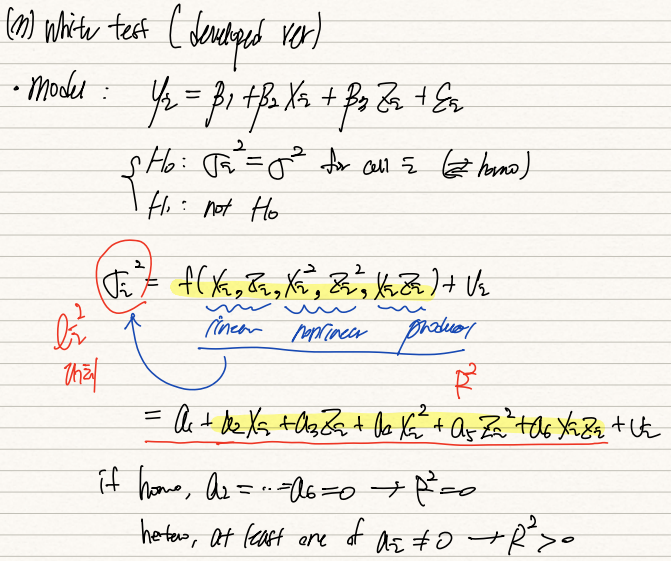 (m) White test (developed ver)
• Model : yᵢ = β₁ + β₂Xᵢ + β₃Zᵢ + εᵢ
H₀ : σᵢ² = σ² for all i (⇄ homo)
H₁ : not H₀
σᵢ² = f(Xᵢ, Zᵢ, Xᵢ², Zᵢ², XᵢZᵢ) + Vᵢ
eᵢ² linear nonlinear product
R²
= a₁ + a₂Xᵢ + a₃Zᵢ + a₄Xᵢ² + a₅Zᵢ² + a₆XᵢZᵢ + Vᵢ
if homo, a₂ = ... = a₆ = 0 → R² = 0
hetero, at least one of aᵢ ≠ 0 → R² > 0